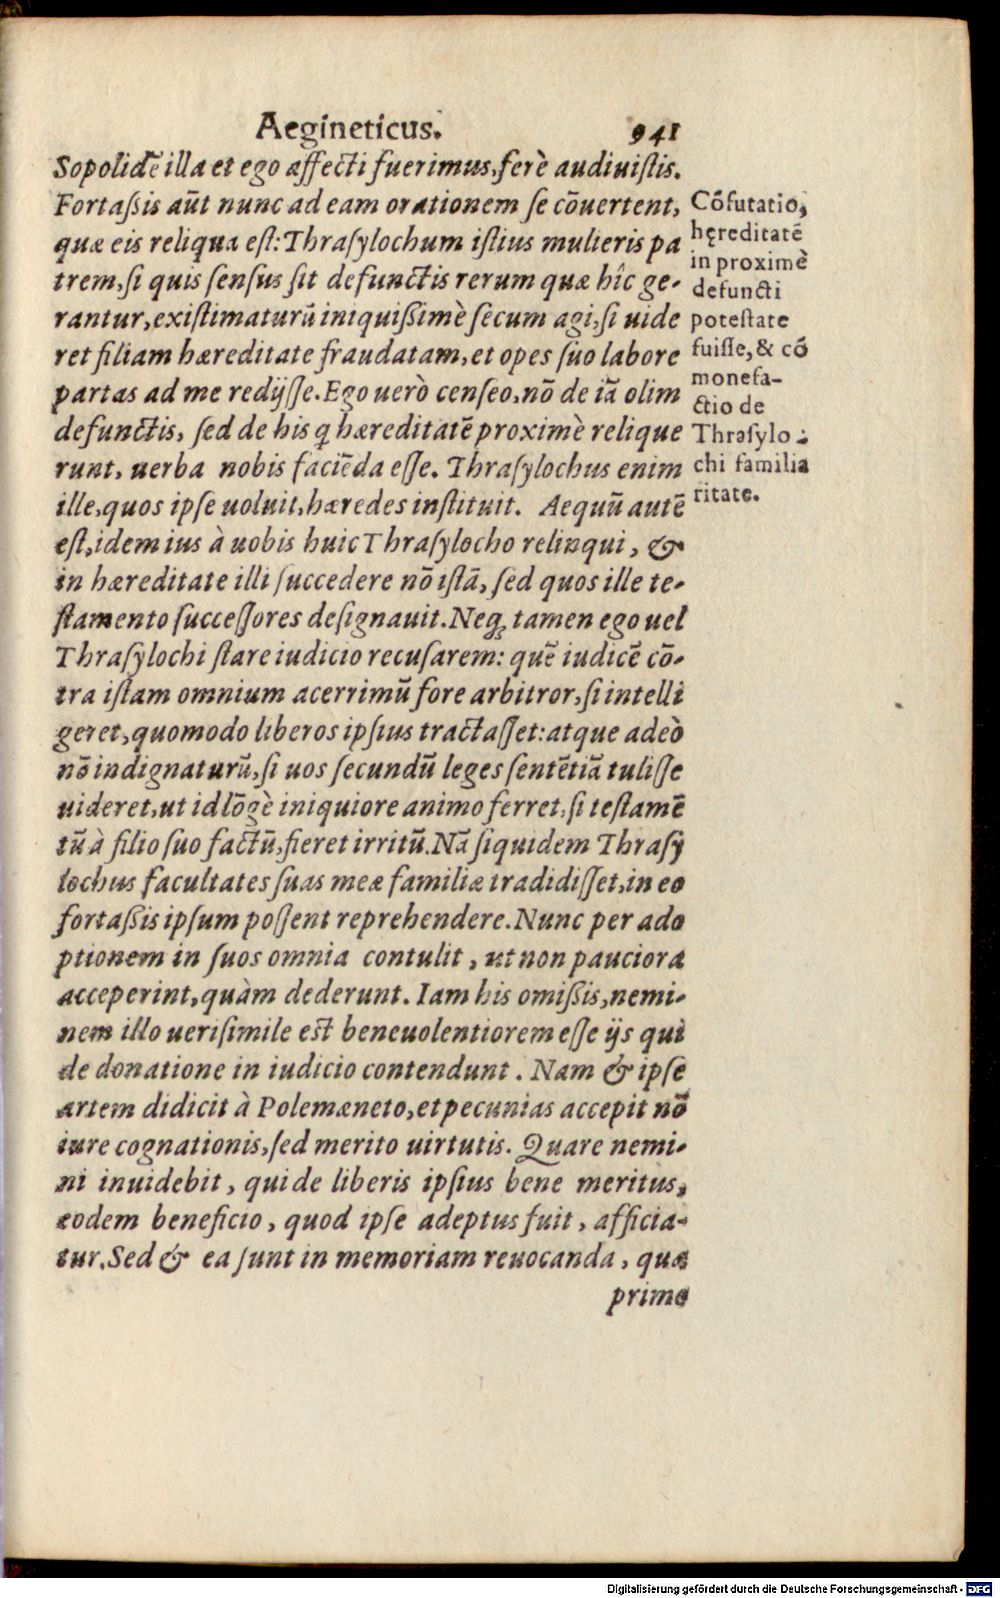 Aegineticus. 941
Sopolidẽ illa et ego affecti fuerimus, ferè audiuiſtis.
Fortaßis aũt nunc ad eam orationem ſe cõuertent,
quæ eis reliqua eſt: Thraſylochum iſtius mulieris pa
trem, ſi quis ſenſus ſit defunctis rerum quæ hîc ge-
rantur, exiſtimaturũ iniquißimè ſecum agi, ſi uide
ret filiam hæreditate fraudatam, et opes ſuo labore
partas ad me redijſſe. Ego uerò cenſeo, nõ de iã olim
defunctis, ſed de his q hæreditatẽ proximè relique
runt, uerba nobis faciẽda eſſe. Thraſylochus enim
ille, quos ipſe uoluit, hæredes inſtituit. Aequũ autẽ
eſt, idem ius à uobis huic Thraſylocho relinqui, &
in hæreditate illi ſuccedere nõ iſtã, ſed quos ille te-
ſtamento ſucceſſores deſignauit. Neq; tamen ego uel
Thraſylochi ſtare iudicio recuſarem: quẽ iudicẽ cõ-
tra iſtam omnium acerrimũ fore arbitror, ſi intelli
geret, quomodo liberos ipſius tractaſſet: atque adeò
nõ indignaturũ, ſi uos ſecundũ leges ſentẽtiã tuliſſe
uideret, ut id lõgè iniquiore animo ferret, ſi teſtamẽ
tũ à filio ſuo factũ, fieret irritũ. Nã ſiquidem Thraſy
lochus facultates ſuas meæ familiæ tradidiſſet, in eo
fortaßis ipſum poſſent reprehendere. Nunc per ado
ptionem in ſuos omnia contulit, ut non pauciora
acceperint, quàm dederunt. Iam his omißis, nemi-
nem illo ueriſimile eſt beneuolentiorem eſſe ijs qui
de donatione in iudicio contendunt. Nam & ipſe
artem didicit à Polemæneto, et pecunias accepit nõ
iure cognationis, ſed merito uirtutis. Quare nemi-
ni inuidebit, qui de liberis ipſius bene meritus,
eodem beneficio, quod ipſe adeptus fuit, afficia-
tur. Sed & ea ſunt in memoriam reuocanda, quæ
primo
Cõfutatio,
hęreditatẽ
in proximè
defuncti
poteſtate
fuiſſe, & cõ
monefa-
ctio de
Thraſylo-
chi familia
ritate.
Digitalisierung gefördert durch die Deutsche Forschungsgemeinschaft - DFG